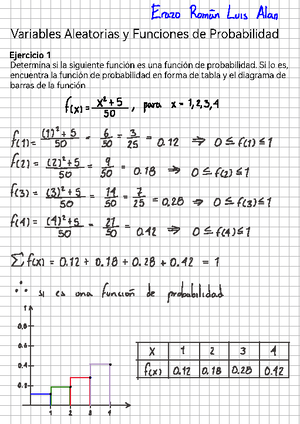 Erazo Román Luis Alan
Variables Aleatorias y Funciones de Probabilidad
Ejercicio 1
Determina si la siguiente función es una función de probabilidad. Si lo es,
encuentra la función de probabilidad en forma de tabla y el diagrama de
barras de la función
f(x) = x²+5 / 50 , para x = 1,2,3,4
f(1) = (1)²+5 / 50 = 6/50 = 3/25 = 0.12 ⇒ 0 ≤ f(1) ≤ 1
f(2) = (2)²+5 / 50 = 9/50 = 0.18 ⇒ 0 ≤ f(2) ≤ 1
f(3) = (3)²+5 / 50 = 14/50 = 7/25 = 0,28 ⇒ 0 ≤ f(3) ≤ 1
f(4) = (4)²+5 / 50 = 21/50 = 0.42 ⇒ 0 ≤ f(4) ≤ 1
∑ f(x) = 0.12 + 0.18 + 0.28 + 0.42 = 1
∴ si es una función de probabilidad
1
0.8
0.6
0.4
0.2
1 2 3 4
x 1 2 3 4
f(x) 0.12 0.18 0.28 0.42